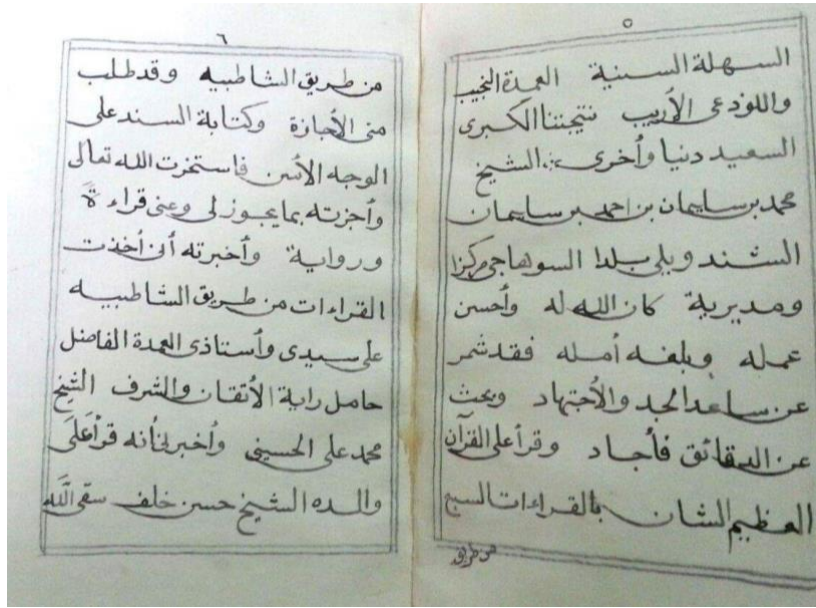 ٥
السهلة السنية العمدة النجيب
واللوذعي الأريب نتيجتنا الكبرى
السعيد دنيا وأخرى الشيخ
محمد بن سليمان بن احمد بن سليمان
الشندويلي بلدا السوهاجي مركزا
ومديرية كان الله له وأحسن
عمله وبلغه أمله فقد شمر
عن ساعد الجد والأجتهاد وبحث
عن الدقائق فأجاد وقرأ على القرآن
العظيم الشان بالقراءات السبع
من طريق
٦
من طريق الشاطبيه وقد طلب
منى الأجازة وكتابة السند على
الوجه الأسن فاستخرت الله تعالى
وأجزته بما يجوز لى وعنى قراءة
ورواية وأخبرته أنى أخذت
القراءات من طريق الشاطبيه
على سيدى وأستاذى العمدة الفاضل
حامل راية الأتقان والشرف الشيخ
محمد على الحسينى وأخبرنى أنه قرأ على
والده الشيخ حسن خلف سقى الله